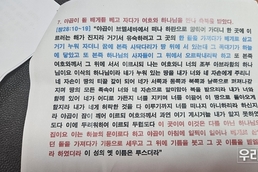 7. 야곱이 돌 베개를 베고 자다가 여호와 하나님을 만나
[창28:10~19] "야곱이 브엘세바에서 떠나 하란으로 향하여 가더니 한 곳에 이르
러는 해가 진지라 거기서 유숙하려고 그 곳의 한 돌을 가져다가 베개로 삼고
거기 누워 자더니 꿈에 본즉 사닥다리가 땅 위에 서 있는데 그 꼭대기가 하늘에
닿았고 또 본즉 하나님의 사자들이 그 위에서 오르락내리락 하고 또 본즉 여호
와께서 그 위에 서서 이르시되 나는 여호와니 너의 조부 아브라함의 하나
님이요 이삭의 하나님이라 네가 누워 있는 땅을 내가 너와 네 자손에게 주리니
네 자손이 땅의 티끌 같이 되어 네가 서쪽과 동쪽과 북쪽과 남쪽으로 퍼져나갈지며
땅의 모든 족속이 너와 네 자손으로 말미암아 복을 받으리라 내가 너와 함께
있어 네가 어디로 가든지 너를 지키며 너를 이끌어 이 땅으로 돌아오게
할지라 내가 네게 허락한 것을 다 이루기까지 너를 떠나지 아니하리라 하신지라
야곱이 잠이 깨어 이르되 여호와께서 과연 여기 계시거늘 내가 알지 못하였도다
이에 두려워하여 이르되 두렵도다 이 곳이여 이것은 다름 아닌 하나님의
집이요 이는 하늘의 문이로다 하고 야곱이 아침에 일찍이 일어나 베개로 삼았
던 돌을 가져다가 기둥으로 세우고 그 위에 기름을 붓고 그 곳 이름을 벧엘이
라 하였더라 이 성의 옛 이름은 루스더라"
우리